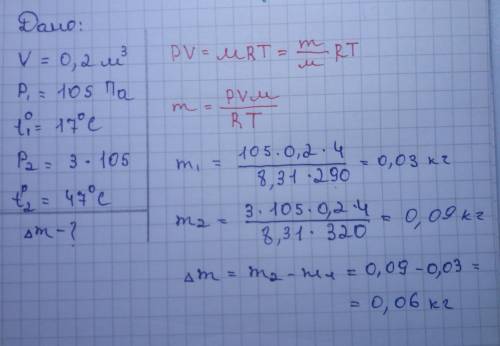 Дано:
V = 0,2 м³
P₁ = 105 Па
t₁° = 17°C
P₂ = 3 · 105
t₂° = 47°C
Δm - ?
PV = μRT = m/μ RT
m = PVμ/RT
m₁ = 105·0,2·4/8,31·290 = 0,03 кг
m₂ = 3·105·0,2·4/8,31·320 = 0,09 кг
Δm = m₂ - m₁ = 0,09 - 0,03 =
= 0,06 кг